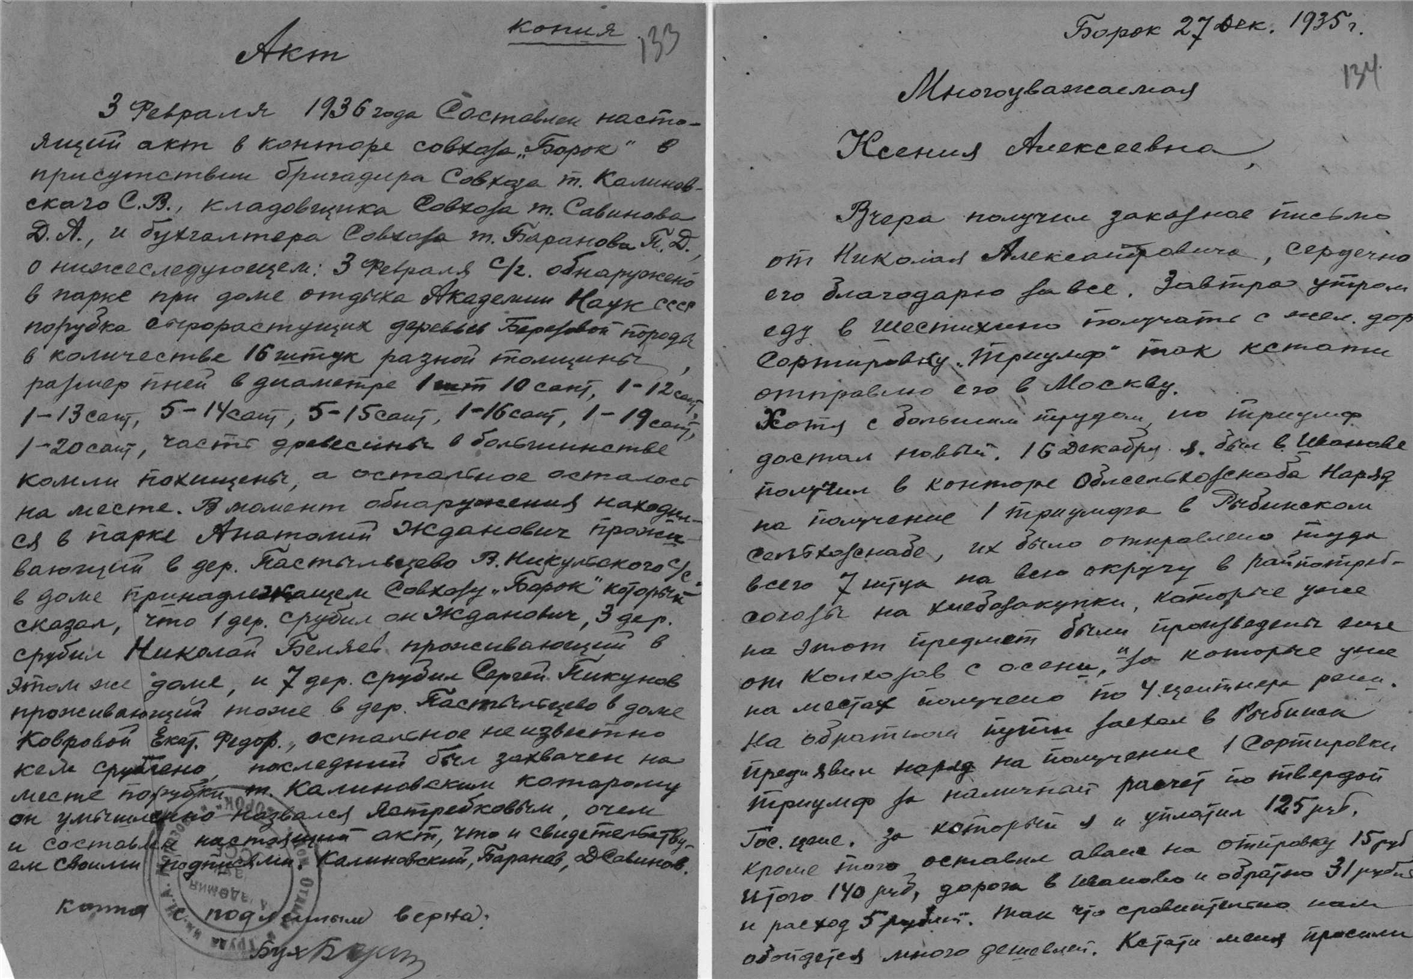 копия
133
Акт
3 Февраля 1936 года Составлен насто-
ящий акт в конторе совхоза „Борок" в
присутствии бригадира Совхоза т. Калинов-
ского С.В., кладовщика Совхоза т. Савинова
Д.А., и бухгалтера Совхоза т. Баранова П.Д.,
о нижеследующем: 3 Февраля с/г. обнаружено
в парке при доме отдыха Академии Наук СССР
порубка сырорастущих деревьев Березовой породы
в количестве 16 штук разной толщины,
размер пней в диаметре 1 шт 10 сант, 1-12 сант,
1-13 сант, 5-14 сант, 5-15 сант, 1-16 сант, 1-19 сант,
1-20 сант, часть древесины в большинстве
комли похищены, а остальное осталось
на месте. В момент обнаружения находил-
ся в парке Анатолий Жданович прожи-
вающий в дер. Пастыльцево В. Никульского с/с
в доме принадлежащем Совхозу „Борок" который
сказал, что 1 дер. срубил он Жданович, 3 дер.
срубил Николай Беляев проживающий в
этом же доме, и 7 дер. срубил Сергей Пикунов
проживающий тоже в дер. Пастыльцево в доме
Ковровой Екат. Федор., остальное неизвестно
кем срублено, последний был захвачен на
месте порубки т. Калиновским которому
он умышленно назвался Ястребковым, о чем
и составлен настоящий акт, что и свидетельству-
ем своими подписями Калиновский, Баранов, ДСавинов.
копия с подлинным верна:
Бух
Борок 27 Дек. 1935 г.
134
Многоуважаемая
Ксения Алексеевна,
Вчера получил заказное письмо
от Николая Александровича, сердечно
его благодарю за все. Завтра утром
еду в Шестихино получать с жел. дор
Сортировку „Триумф" так кстати
отправлю его в Москву.
Хотя с большим трудом, но триумф
достал новый. 16 Декабря я был в Иванове
получил в конторе Облсельхозснаба Наряд
на получение 1 триумфа в Рыбинском
сельхозснабе, их было отправлено туда
всего 7 штук на всю округу в райпотреб-
союзы на хлебозакупки, которые уже
на этот предмет были произведены еще
от Колхозов с осени, за которые уже
на местах получено по 4 центнера
На обратном пути заехал в Рыбинск
предъявил наряд на получение 1 Сортировки
триумф за наличный расчет по твердой
Гос. цене. за который я и уплатил 125 руб.
кроме того оставил аванс на отправку 15 руб
Итого 140 руб, дорога в Иваново и обратно 31 рубль
и расход 5 рублей. так что сравнительно нам
обойдется много дешевле. Кстати меня просили